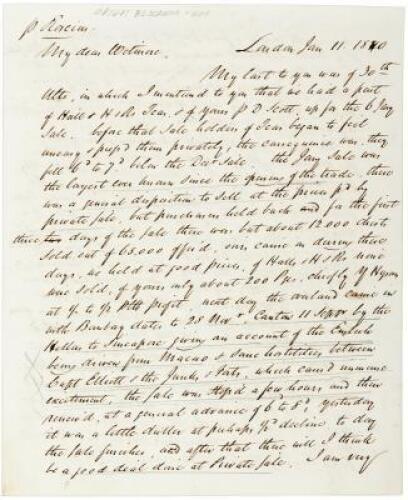 p Roscius
London Jan 11. 1840
My dear Wetmore.
My last to you was of 30th
Ulto, in which I mentioned to you that we had a part
of Halls & H & Rs Teas, & of yours p D Scott, up for the 6 Jany
Sale. before that Sale holders of Teas began to feel
uneasy & press'd them privately, the consequence was, they
fell 6d to 7d below the Decr Sale. the Jany Sale was
the largest ever known since the opening of the trade. there
was a general disposition to sell at the prices pd by
private sale. but purchasers held back and for the first
three days of the sale there was but about 12.000 chests
sold out of 65.000 offer'd. ours came on during these
days, we held at good prices, of Halls & H & Rs none
were sold, of yours only about 200 Pgs. chiefly of Hyson
at profit. next day the overland came in
with Bombay dates to 28 Novr. Canton 11 Septr by the
Hellas to Sincapore giving an account of the English
being driven from Macao & some hostilities between
Capt Elliott & the Junks & Forts, which caus'd immense
excitement, the sale was stop'd a few hours and then
renew'd, at a general advance of 6 to 8d, yesterday
it was a little duller at perhaps decline, to day
the sale finishes, and after that there will I think
be a good deal done at Private Sale. I am very